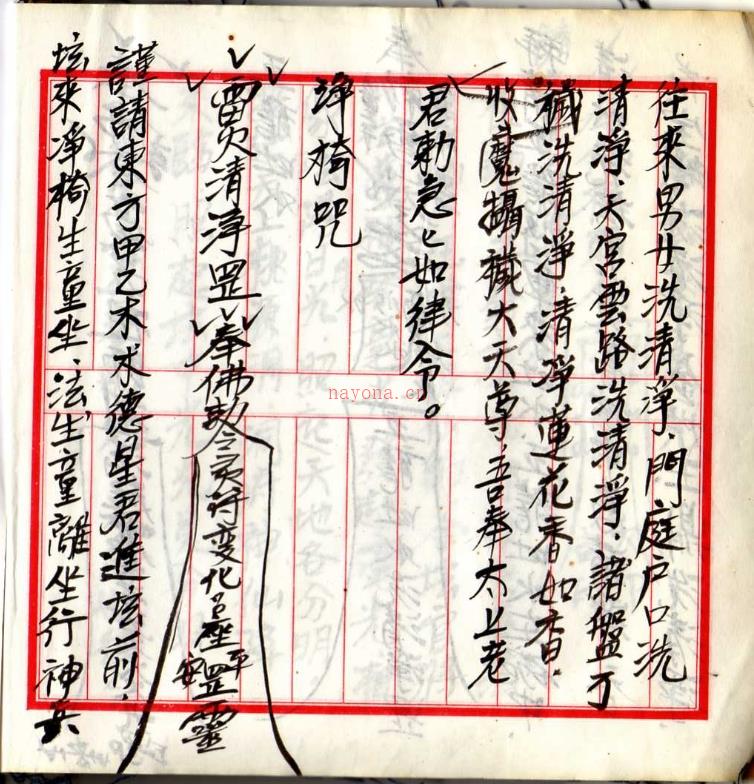 往來男女洗清淨、門庭戶口洗
清淨、天宮雲路洗清淨、諸盤丁
穢洗清淨、清凈蓮花香如香、
收魔攝穢大天尊、吾奉太上老
君勅急〻如律令。
淨椅咒
清淨罡奉佛敕令符变化座平安罡靈
謹請東方甲乙木木德星君進坛前、
坛來凈椅生童坐、法生童離坐行神兵
nayona.cn